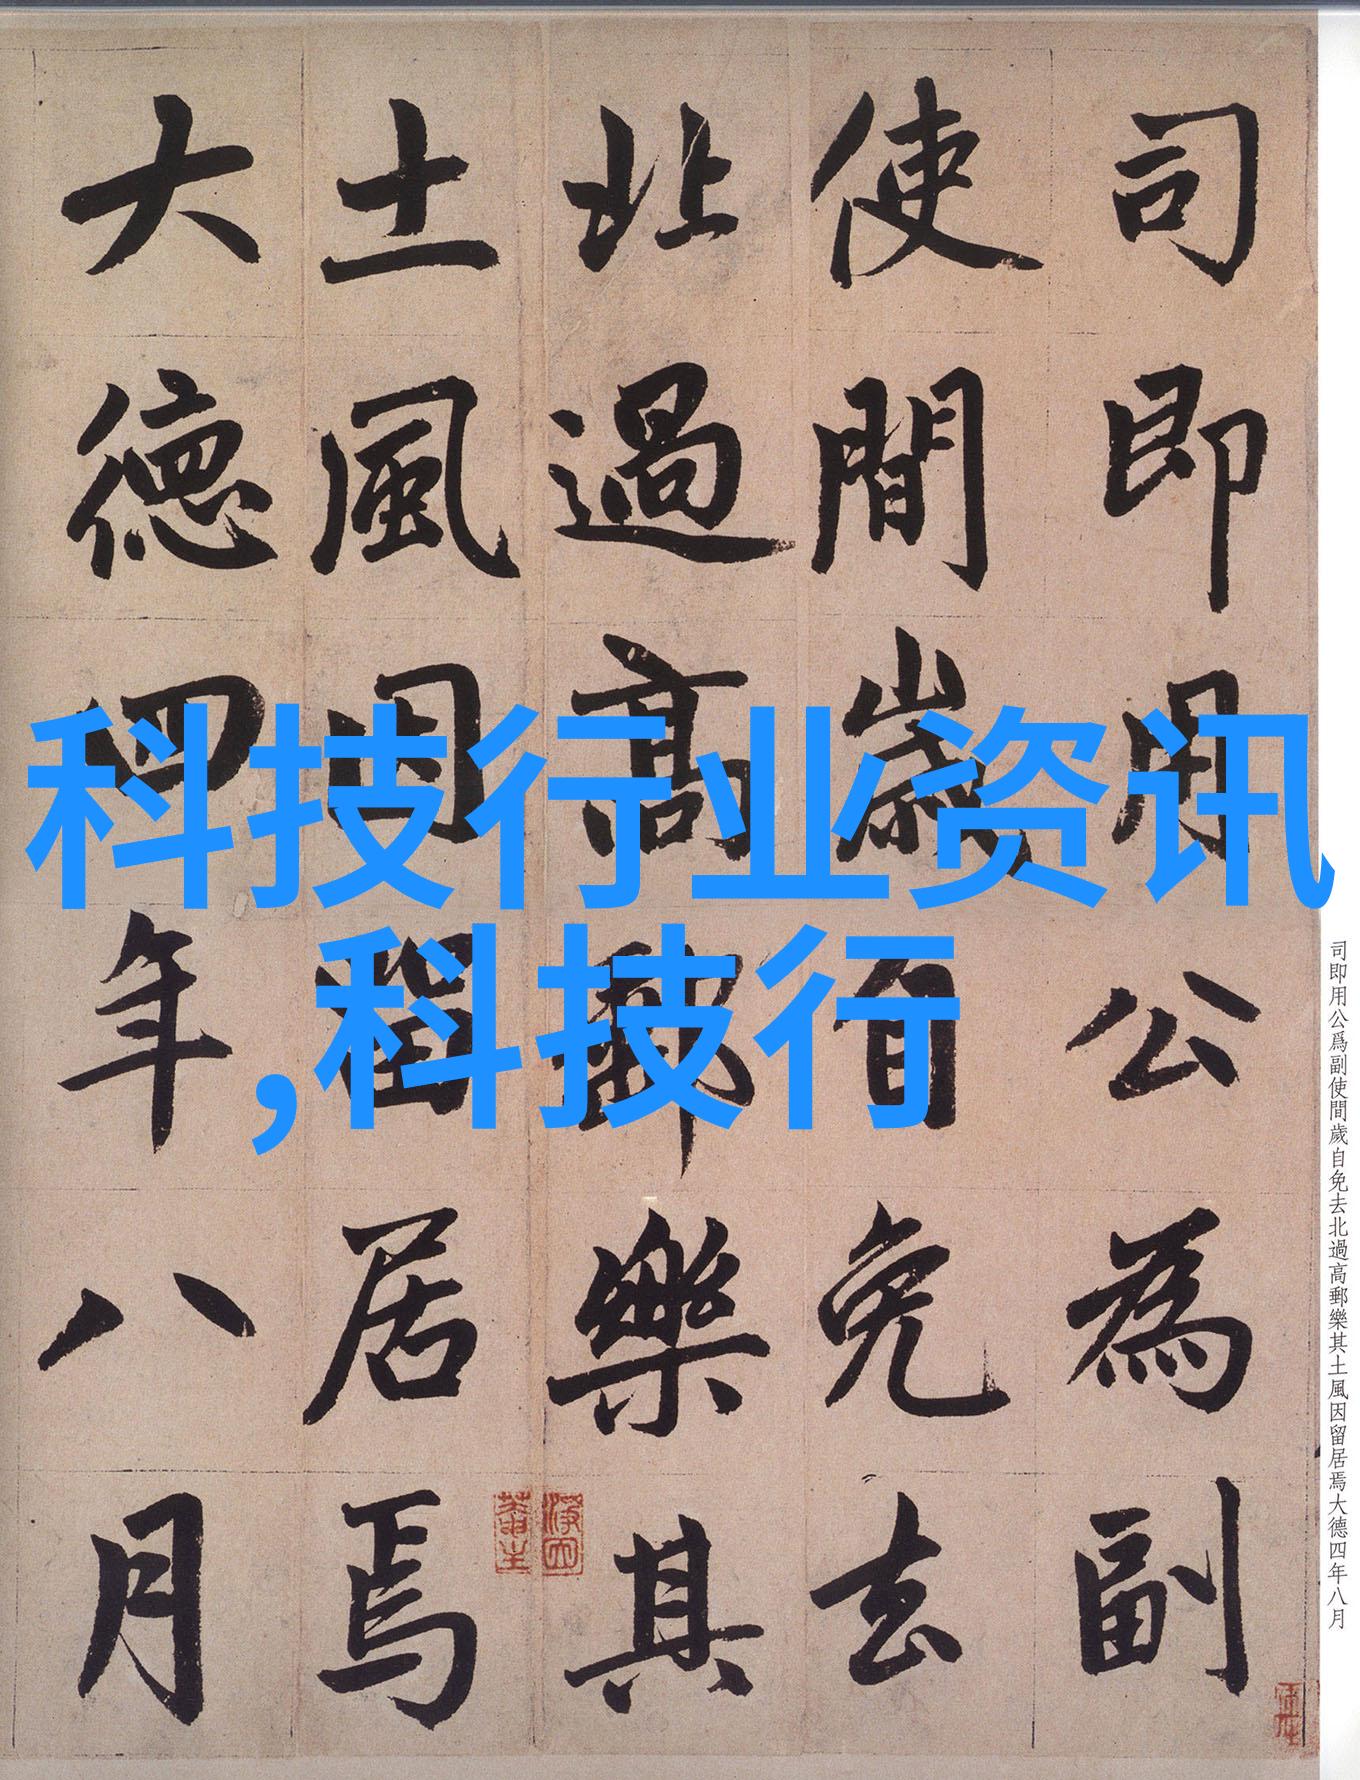 司即用公為副
使間歲自免去
北過高郵樂其
土風因留居焉
大德四年八月
科技行业资讯
,科技行
司即用公爲副使間歲自免去北過高郵樂其土風因留居焉大德四年八月